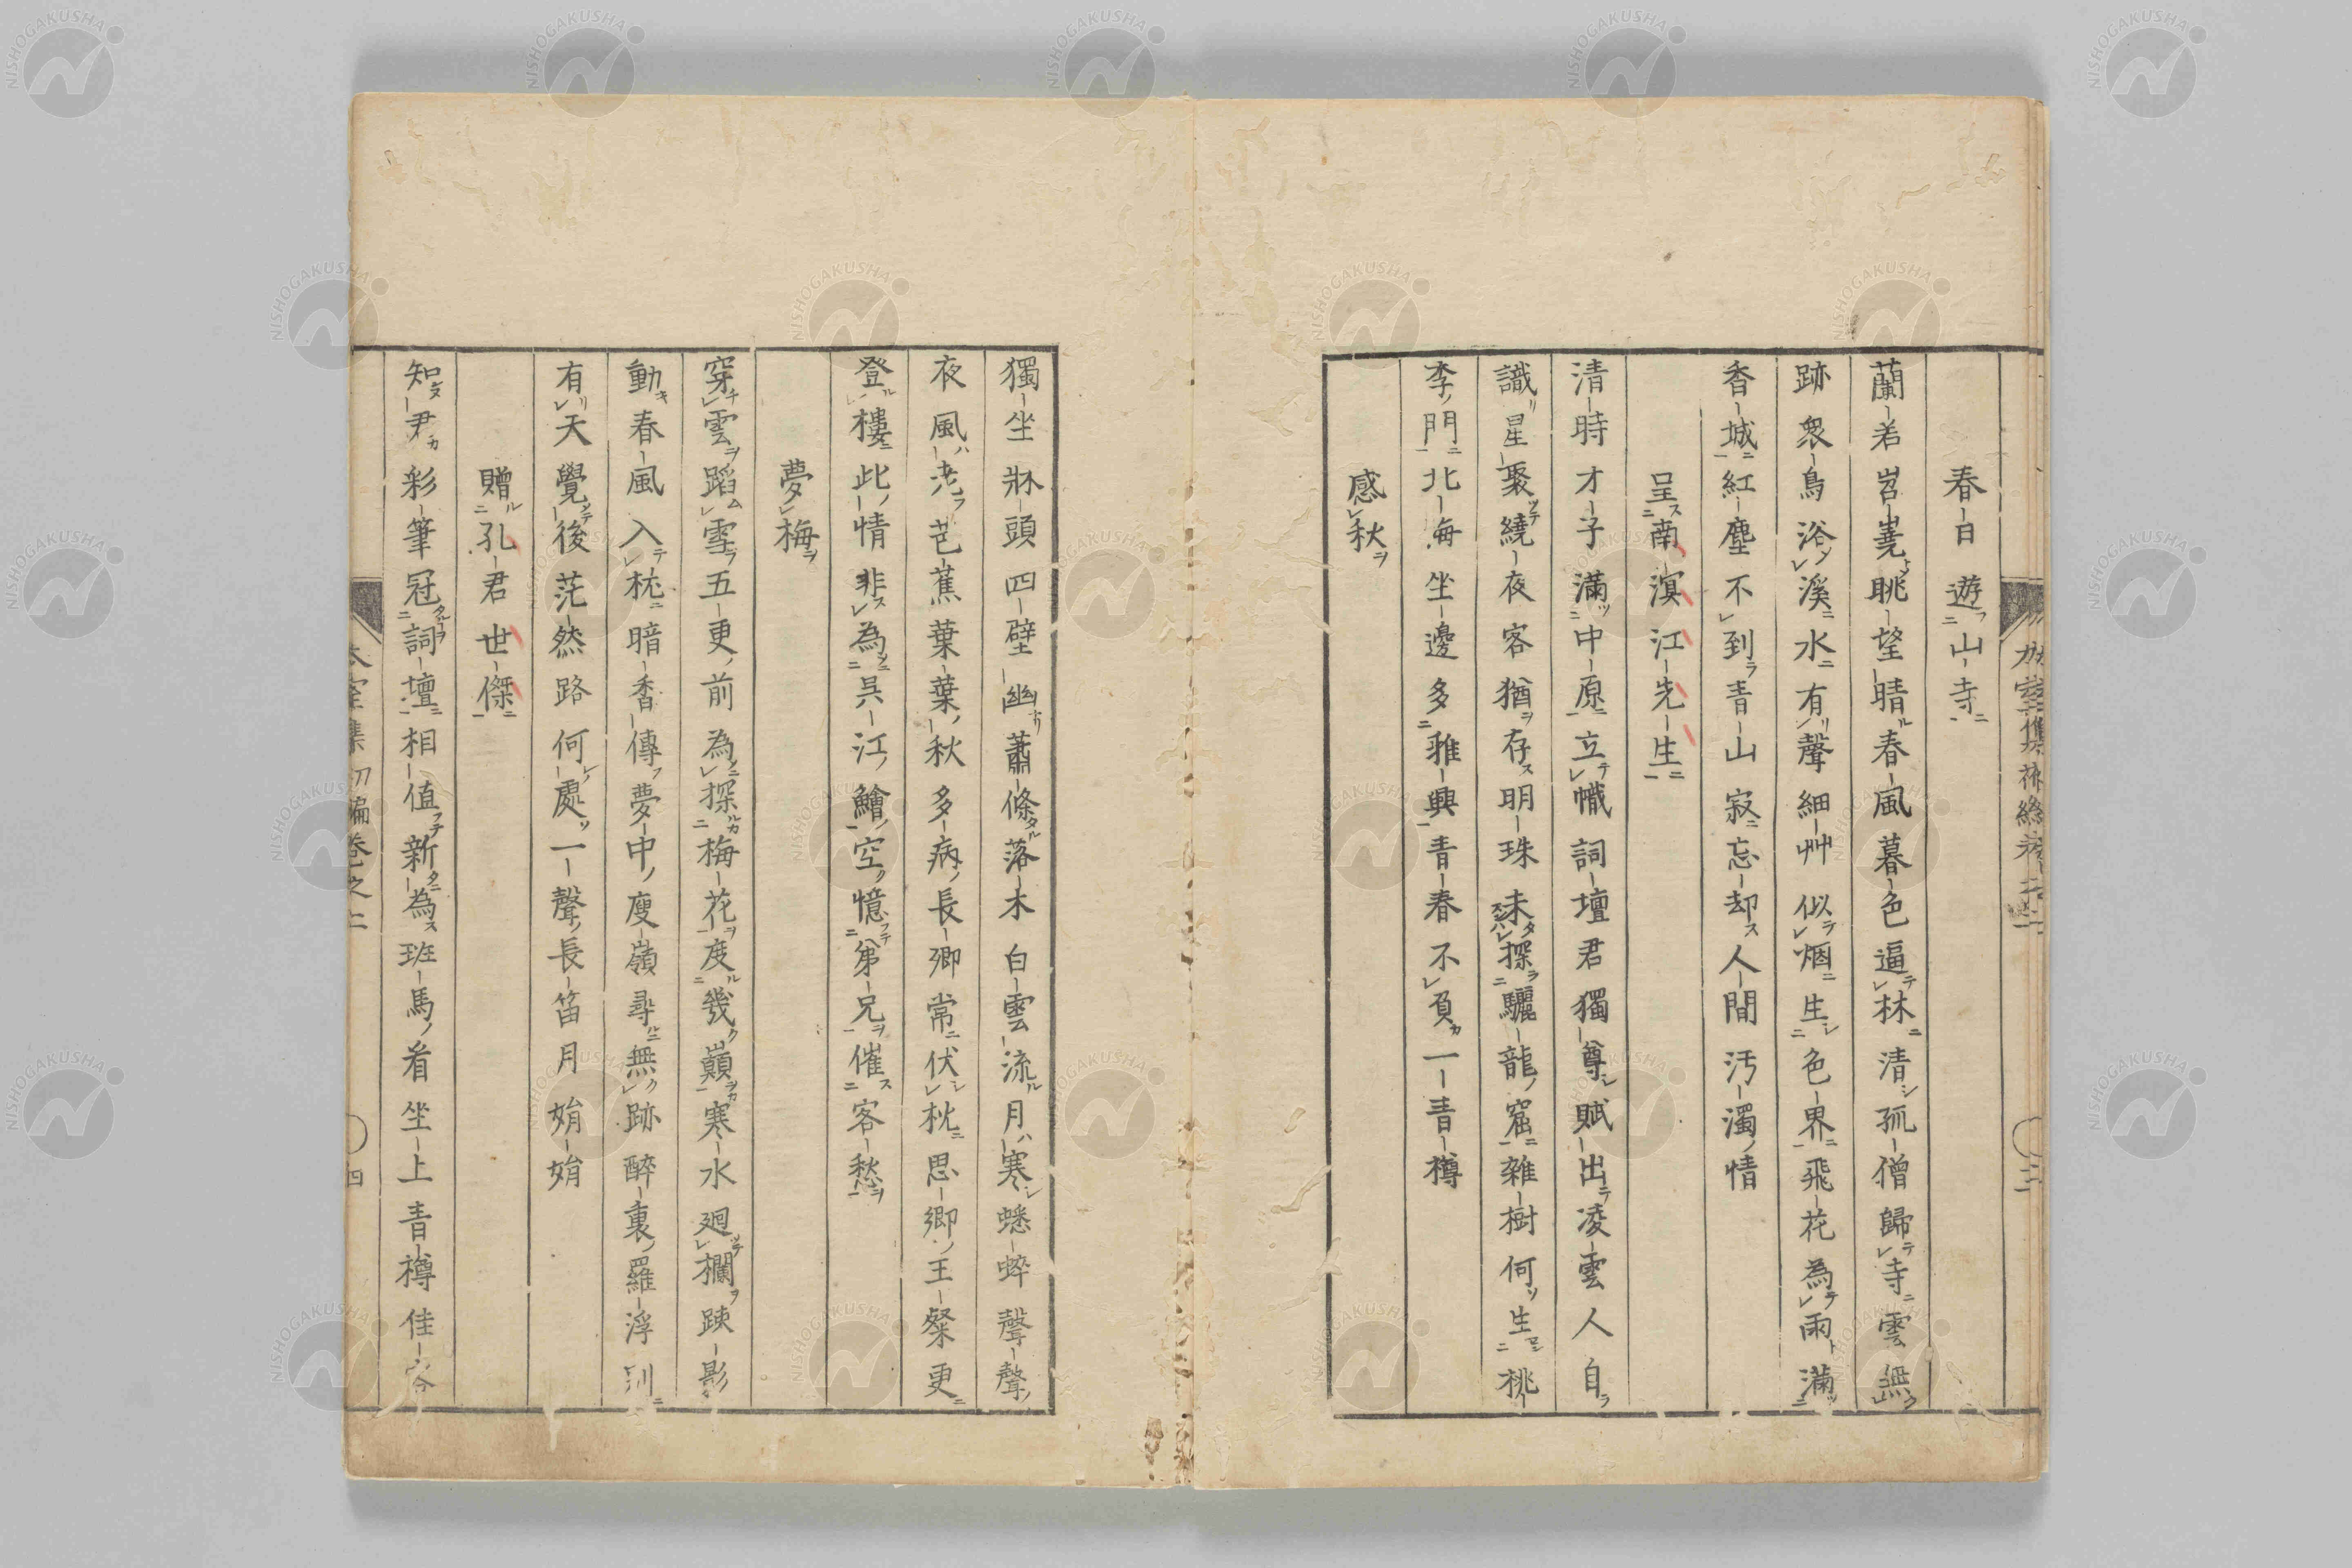 春日遊山寺
蘭若岧嶤眺望晴春風暮色逼林清孤僧歸寺雲無
跡衆鳥浴溪水有聲細艸似烟生色界飛花為雨滿
香城紅塵不到青山寂忘却人間汚濁情
呈南溟江先生
清時才子滿中原立幟詞壇君獨尊賦出凌雲人自
識星聚繞夜客猶存明珠未探驪龍窟雑樹何生桃
李門北海坐邊多雅興青春不負一青樽
感秋
獨坐牀頭四壁幽蕭條落木白雲流月寒蟋蟀聲聲
夜風芭蕉葉葉秋多病長卿常伏枕思鄉王粲更
登樓此情非為吳江鱠空憶弟兄催客愁
夢梅
穿雲蹈雪五更前為探梅花度幾巔寒水廻欄踈影
動春風入枕暗香傳夢中庾嶺尋無跡醉裏羅浮別
有天覺後茫然路何處一聲長笛月娟娟
贈孔君世傑
知尹彩筆冠詞壇相值新為班馬看坐上青樽佳客
集初編卷之二
四
NISHOGAKUSHA